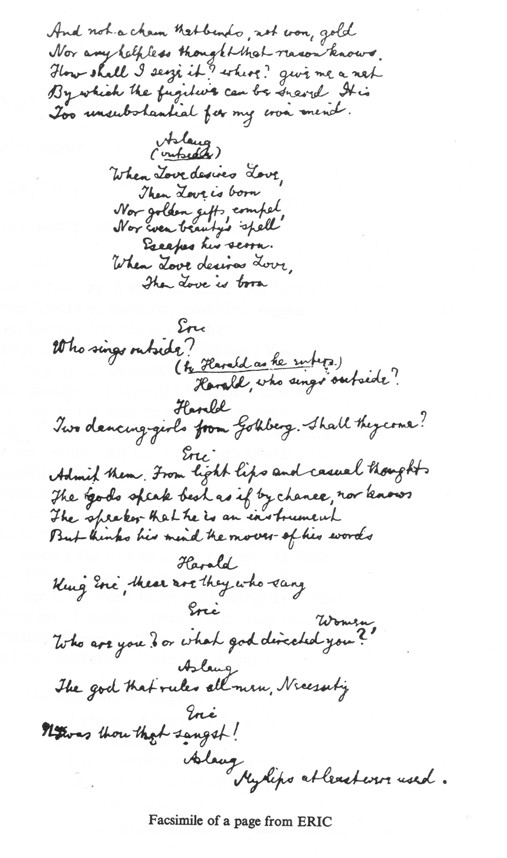 And not a chain that binds, not iron, gold
Nor any helpless thought that reason knows.
How shall I seize it? where? give me a net
By which the fugitive can be snared. It is
Too unsubstantial for my iron mind.
Aslaug
(outside)
When Love desires Love,
Then Love is born
Nor golden gifts compel,
Nor even beauty's spell
Escapes his scorn.
When Love desires Love,
Then Love is born
Eric
Who sings outside?
(to Harald as he enters.)
Harald, who sings outside?
Harald
Two dancing-girls from Gothberg. Shall they come?
Eric
Admit them. From light lips and casual thoughts
The gods speak best as if by chance, nor knows
The speaker that he is an instrument
But thinks his mind the mover of his words
Harald
King Eric, these are they who sang
Eric
Women,
Who are you? or what god directed you?
Aslaug
The god that rules all men, Necessity
Eric
It was thou that sangst!
Aslaug
My lips at least were used.
Facsimile of a page from ERIC